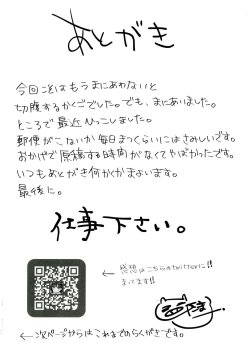 あとがき
今回ことはもうまにあわないと
切腹するかくごでした。でも、まにあいました。
ところで最近ひっこしました。
郵便がこないか毎日まっくらいにはさみしいです。
おかげで原稿する時間がなくてやばかったです。
いつもあとがき何かくかまよいます。
最後に。
仕事下さい。
←感想はこちらのtwitterに!!
まってます!!
←次ページからはこれまでのらくがきです。